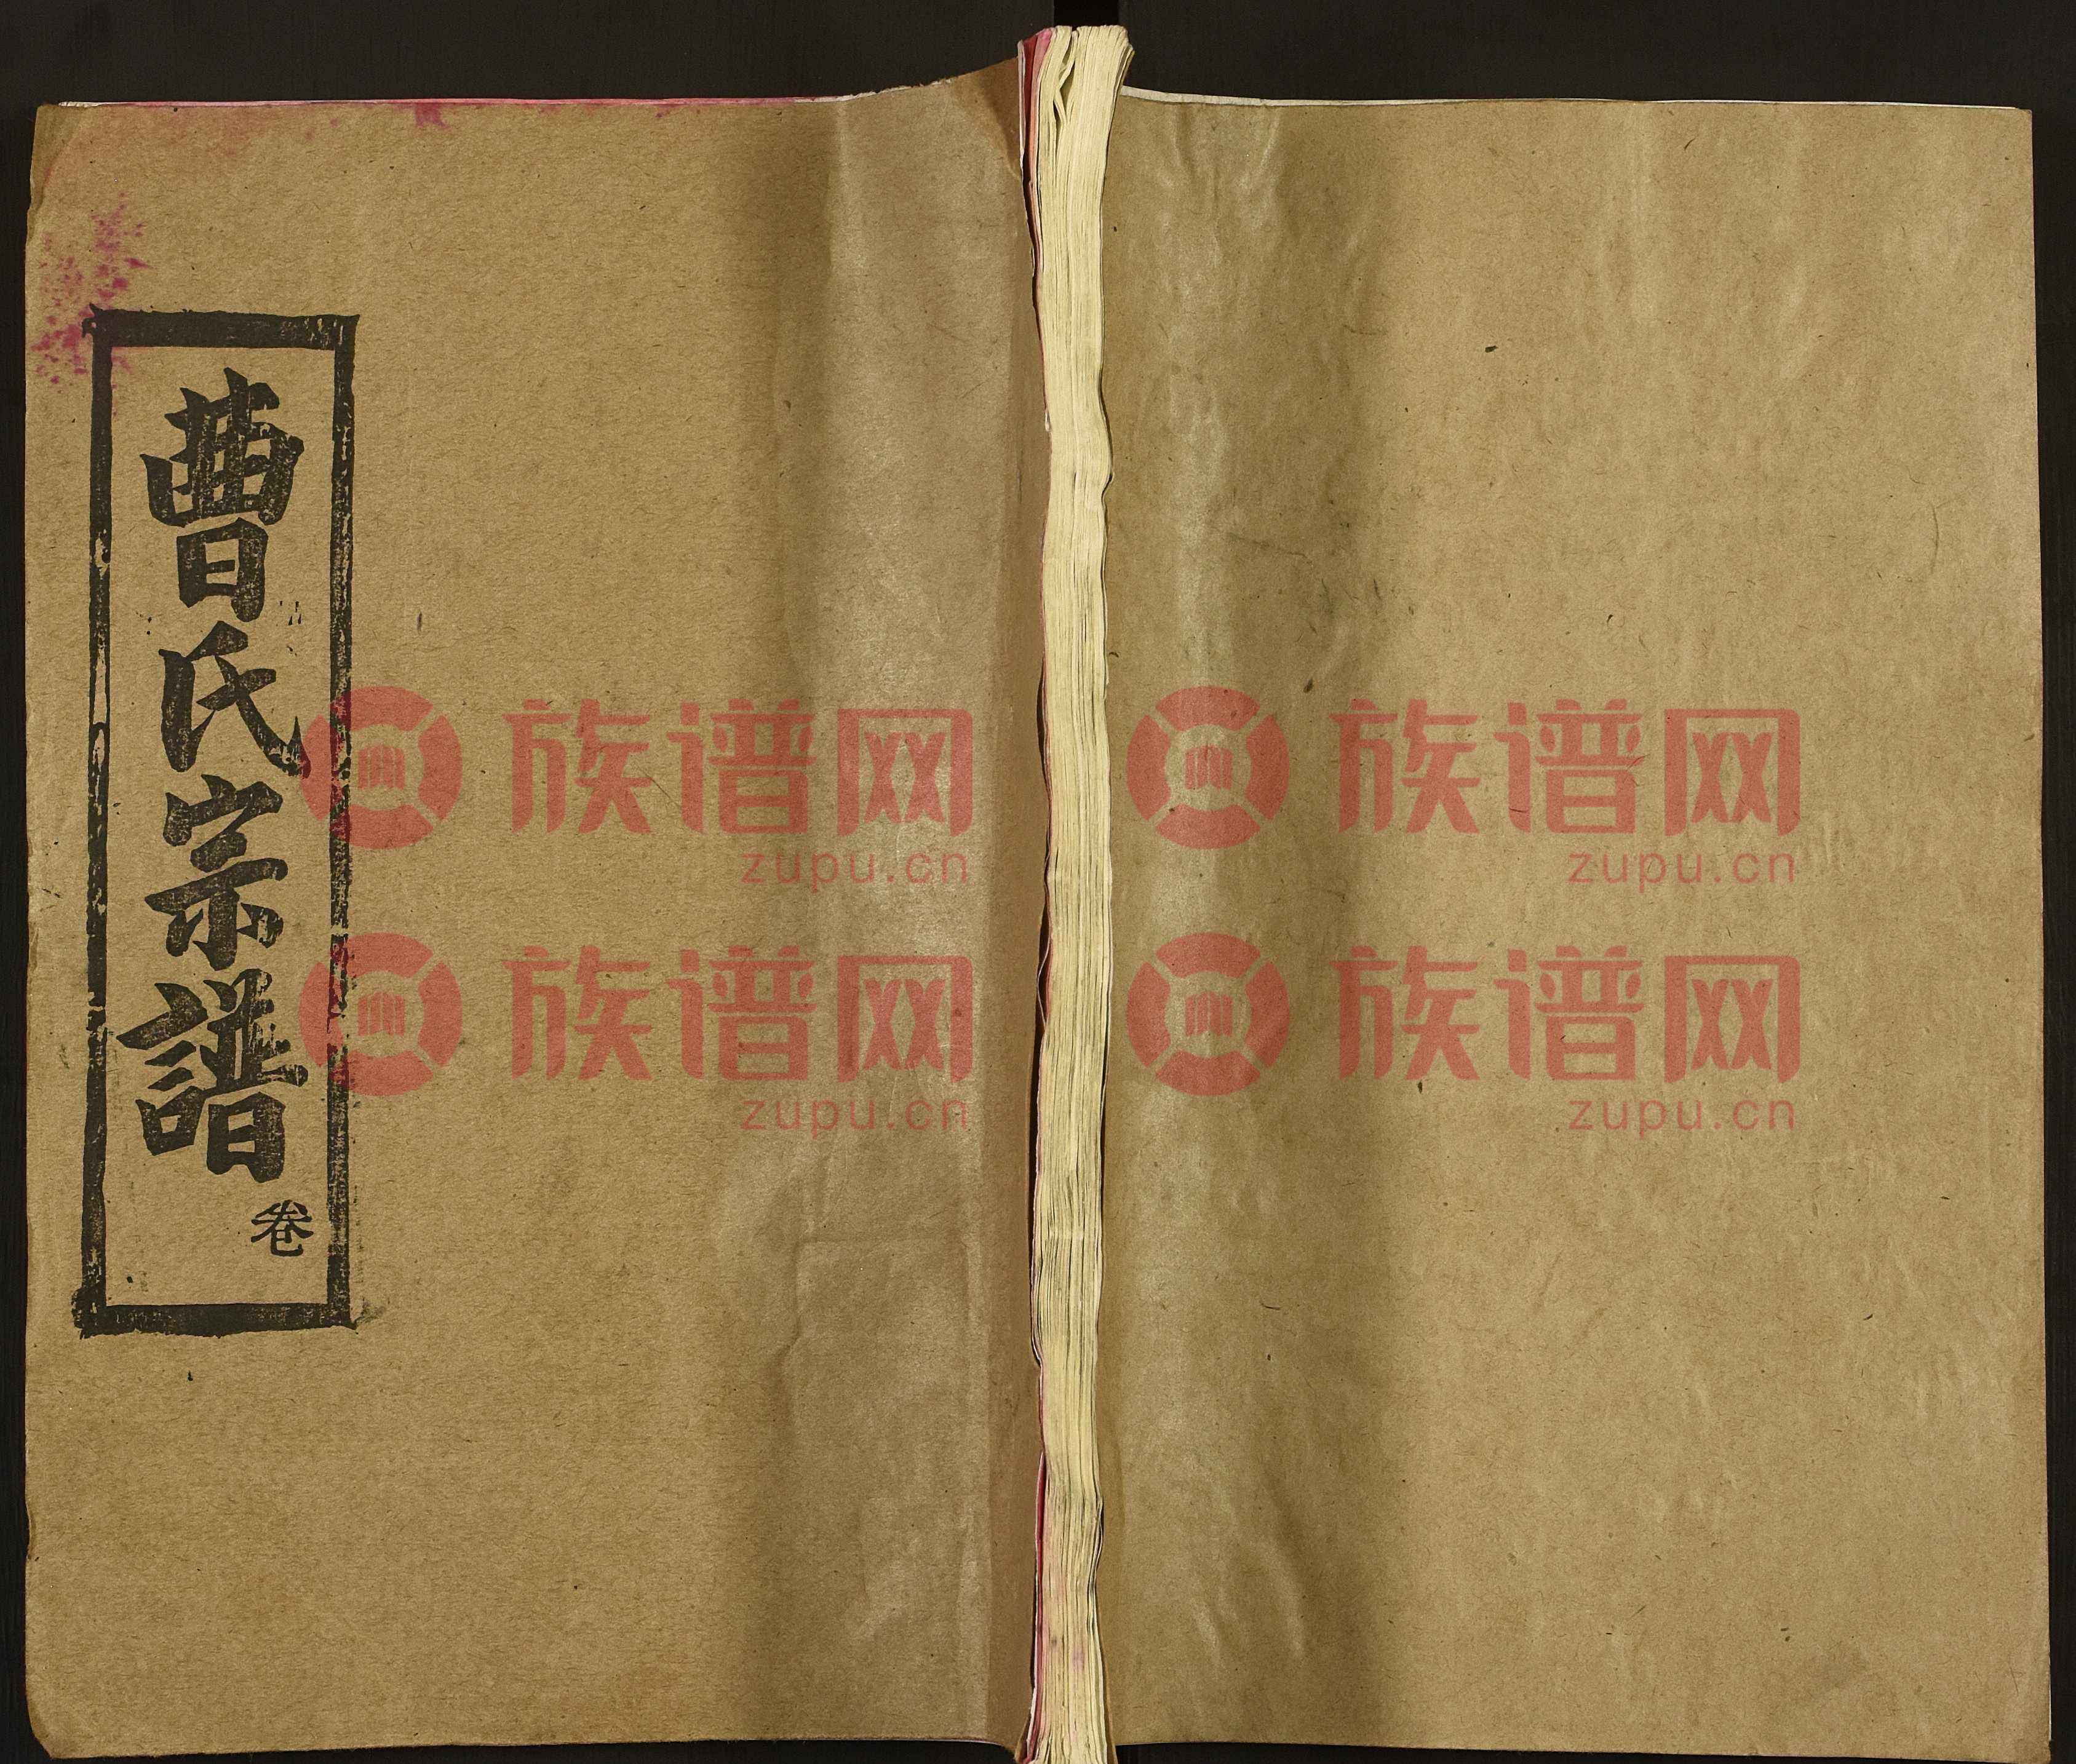 曹氏宗譜
卷
族谱网 族谱网
zupu.cn zupu.cn
族谱网 族谱网
zupu.cn zupu.cn